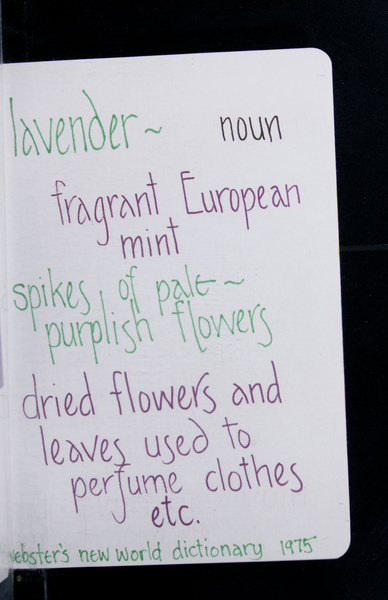 lavender ~ noun
fragrant European
mint
spikes of pale ~
purplish flowers
dried flowers and
leaves used to
perfume clothes
etc.
webster's new world dictionary 1975